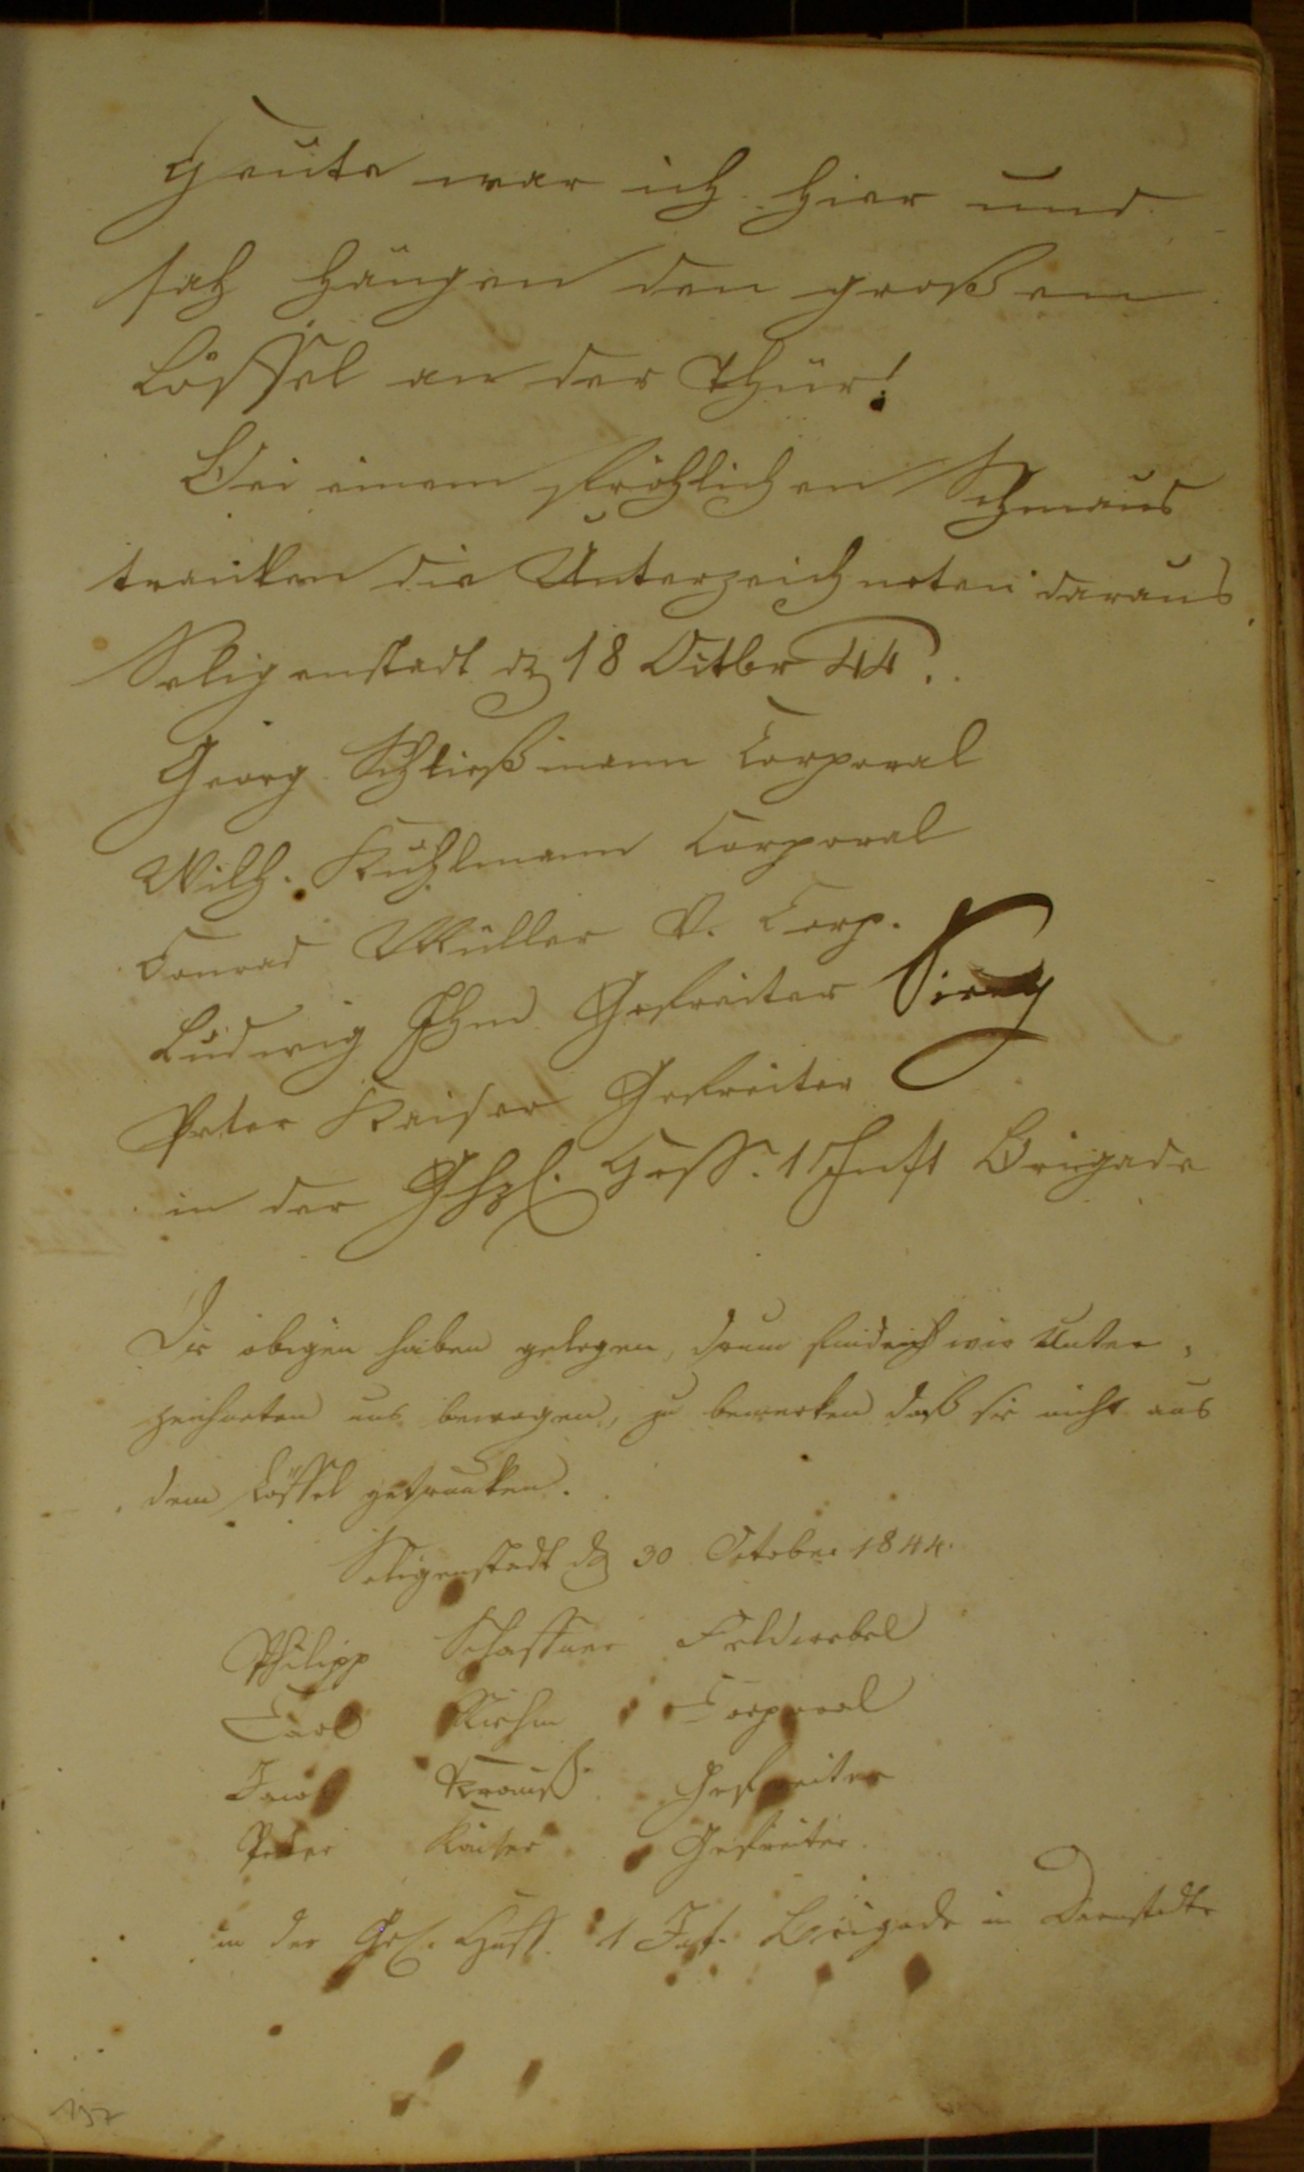 Heute war ich hier und
sah hängen den großen
Löffel an der Thür!
Bei einem fröhlichen Schmaus
tranken die Unterzeichneten daraus
Seligenstadt d 18 Octbr 44.
Georg Schließmann Corporal
Wilh. Kuhlmann Corporal
Conrad Müller V. Corp.
Ludwig Ihm Gefreiter
Peter Kaiser Gefreiter
in der Ghzl. Hess. 1 Inft Brigade
Die obigen haben gelogen, drum finden wir Unter-
zeichneten uns bewogen, zu bemerken daß sie nicht aus
dem Löffel getrunken.
Seligenstadt d 30 October 1844.
Philipp Schaffner Feldwebel
Carl Corporal
Jacob Krauß Gefreiter
Peter Kaiser Gefreiter
in der Hess. 1 Inf. Brigade in Darmstadt
197